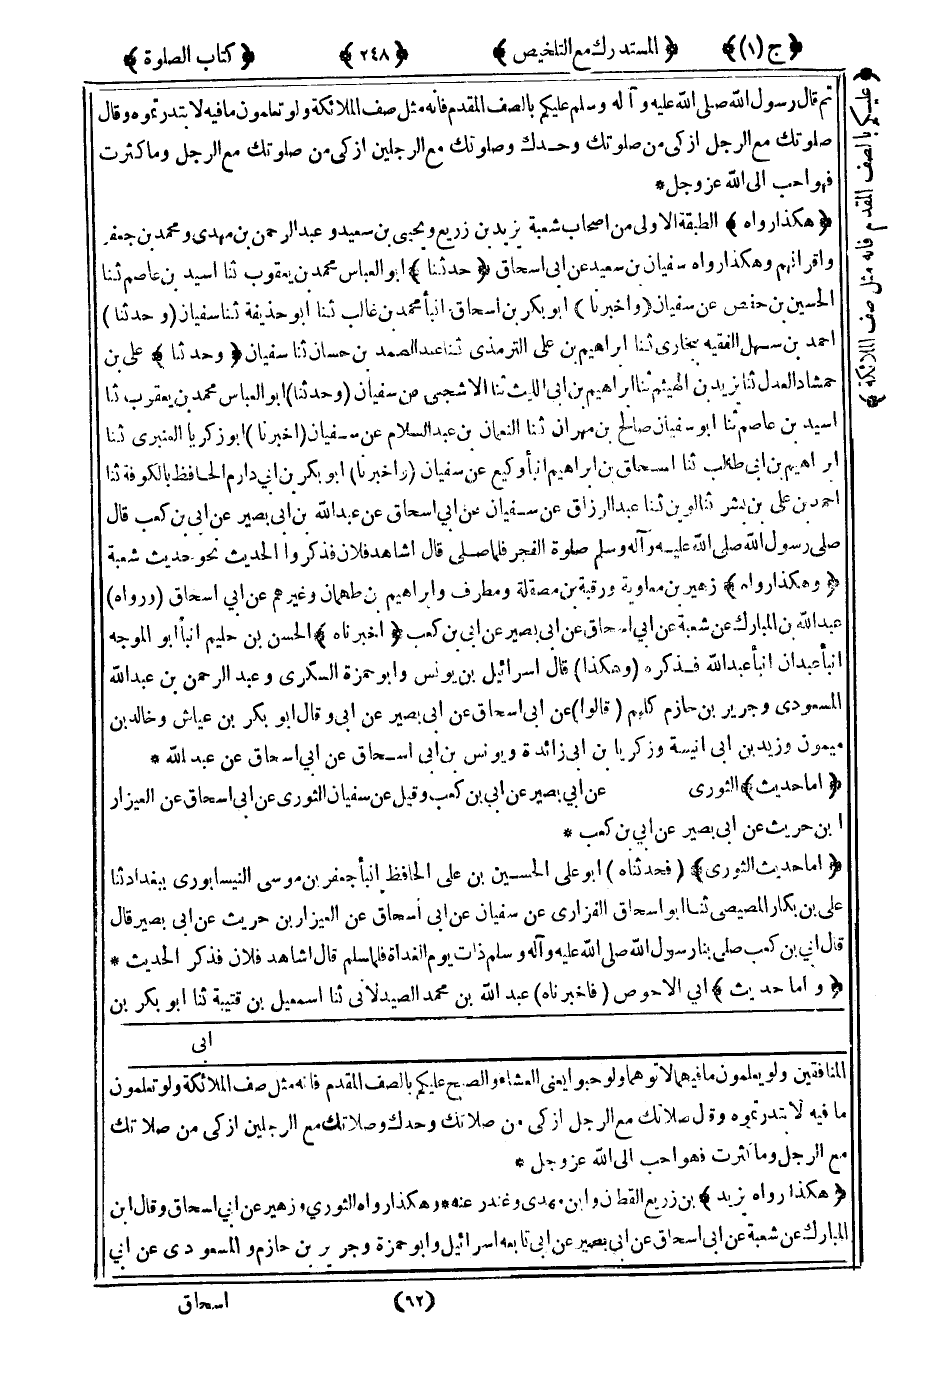 ﴿ ج (١) ﴾ ﴿ المستدرك مع التلخيص ﴾ ﴿ ٢٤٨ ﴾ ﴿ كتاب الصلوة ﴾
ثم قال رسول الله صلى الله عليه وآله وسلم عليكم بالصف المقدم فانه مثل صف الملائكة ولو تعلمون ما فيه لابتدرتموه وقال
صلوتك مع الرجل ازكى من صلوتك وحدك وصلوتك مع الرجلين ازكى من صلوتك مع الرجل وما كثرت
فهو احب الى الله عز وجل *
﴿ هكذا رواه ﴾ الطبقة الاولى من اصحاب شعبة يزيد بن زريع ويحيى بن سعيد وعبد الرحمن بن مهدى ومحمد بن جعفر
واقرانهم وهكذا رواه سفيان بن سعيد عن ابى اسحاق ﴿ حدثنا ﴾ ابو العباس محمد بن يعقوب ثنا اسيد بن عاصم ثنا
الحسين بن حفص عن سفيان (واخبرنا) ابو بكر بن اسحاق انبأ محمد بن غالب ثنا ابو حذيفة ثنا سفيان (وحدثنا)
احمد بن سهل الفقيه ببخارى ثنا ابراهيم بن على الترمذى ثنا عبد الصمد بن حسان ثنا سفيان ﴿ وحدثنا ﴾ على بن
حمشاد العدل ثنا يزيد بن الهيثم ثنا ابراهيم بن ابى الليث ثنا الاشجعى عن سفيان (وحدثنا) ابو العباس محمد بن يعقوب ثنا
اسيد بن عاصم ثنا ابو سفيان صالح بن مهران ثنا النعمان بن عبد السلام عن سفيان (اخبرنا) ابو زكريا العنبرى ثنا
ابراهيم بن ابى طالب ثنا اسحاق بن ابراهيم انبأ وكيع عن سفيان (واخبرنا) ابو بكر بن ابي دارم الحافظ بالكوفة ثنا
احمد بن على بن بشر ثنا عبد الرزاق عن سفيان عن ابى اسحاق عن عبد الله بن ابى بصير عن ابى بن كعب قال
صلى رسول الله صلى الله عليه وآله وسلم صلوة الفجر فلما صلى قال اشاهد فلان فذكروا الحديث نحو حديث شعبة
﴿ وهكذا رواه ﴾ زهير بن معاوية ورقبة بن مصقلة ومطرف وابراهيم بن طهمان وغيرهم عن ابي اسحاق (ورواه)
عبد الله بن المبارك عن شعبة عن ابي اسحاق عن ابى بصير عن ابى بن كعب ﴿ اخبرناه ﴾ الحسن بن حليم انبأ ابو الموجه
انبأ عبدان انبأ عبد الله فذكره (وهكذا) قال اسرائيل بن يونس وابو حمزة السكرى وعبد الرحمن بن عبد الله
المسعودى وجرير بن حازم كلهم (قالوا) عن ابى اسحاق عن ابى بصير عن ابى وقال ابو بكر بن عياش وخالد بن
ميمون وزيد بن ابى انيسة وزكريا بن ابى زائدة ويونس بن ابى اسحاق عن ابي اسحاق عن عبد الله *
﴿ اما حديث ﴾ الثورى عن ابي بصير عن ابي بن كعب وقيل عن سفيان الثورى عن ابى اسحاق عن العيزار
ابن حريث عن ابى بصير عن ابي بن كعب *
﴿ اما حديث الثورى ﴾ (فحدثناه) ابو على الحسين بن على الحافظ انبأ جعفر بن موسى النيسابورى ببغداد ثنا
على بن بكار المصيصى ثنا ابو اسحاق الفزارى عن سفيان عن ابى أسحاق عن العيزار بن حريث عن ابى بصير قال
قال ابي بن كعب صلى بنا رسول الله صلى الله عليه وآله وسلم ذات يوم الغداة فلما سلم قال اشاهد فلان فذكر الحديث *
﴿ واما حديث ﴾ ابي الاحوص (فاخبرناه) عبد الله بن محمد الصيدلانى ثنا اسمعيل بن قتيبة ثنا ابو بكر بن
ابى
المنافقين ولو يعلمون ما فيهما لاتوهما ولو حبوا يعنى العشاء والصبح عليكم بالصف المقدم فانه مثل صف الملائكة ولو تعلمون
ما فيه لابتدرتموه وقال صلاتك مع الرجل ازكى من صلاتك وحدك وصلاتك مع الرجلين ازكى من صلاتك
مع الرجل وما كثرت فهو احب الى الله عز وجل *
﴿ هكذا رواه يزيد ﴾ بن زريع القطان وابن مهدى وغندر عنه * وهكذا رواه الثوري وزهير عن ابي اسحاق وقال ابن
المبارك عن شعبة عن ابى اسحاق عن ابى بصير عن ابى تابعه اسرائيل وابو حمزة وجرير بن حازم والمسعودى عن ابي
(٦٢) اسحاق
﴿ عليكم بالصف المقدم فانه مثل صف الملائكة ﴾